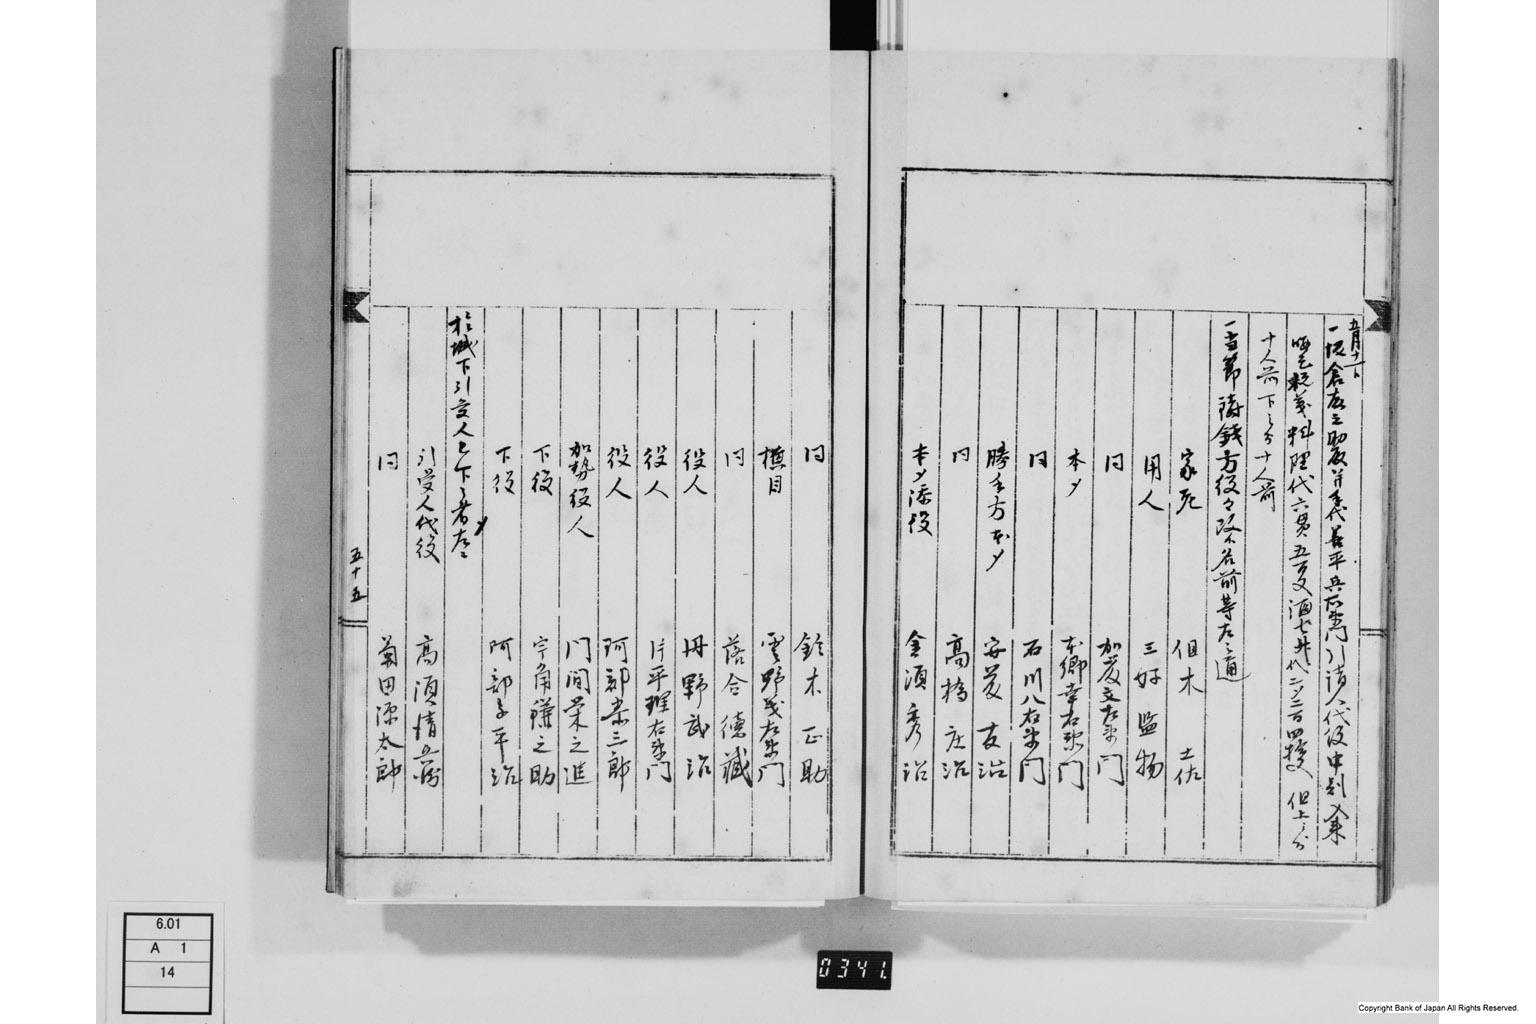 五月十一日
一板倉左之助殿并手代善平兵右衛門引請人代役中別
料理代六貫五百文酒七升代二〆二百四拾文但上之分
十人前下之分十人前
一当節鋳銭方役々改名前等左之通
家死 但木土佐
用人 三好監物
同 加藤文左衛門
本〆 本郷幸右衛門
同 石川八右衛門
勝手方本〆 安藤友治
同 高橋庄治
本〆添役 金須秀治
同 鈴木正助
横目 雲野茂左衛門
同 落合徳蔵
役人 丹野武治
役人 片平理右衛門
役人 阿部宗三郎
加勢役人 門間栄之進
下役 宇角謙之助
下役 阿部善平治
於城下引受人已下之者左ニ
引受人代役 高須情
同 菊田源太郎
五十五
6.01
A 1
14
0341.
Copyright Bank of Japan All Rights Reserved.